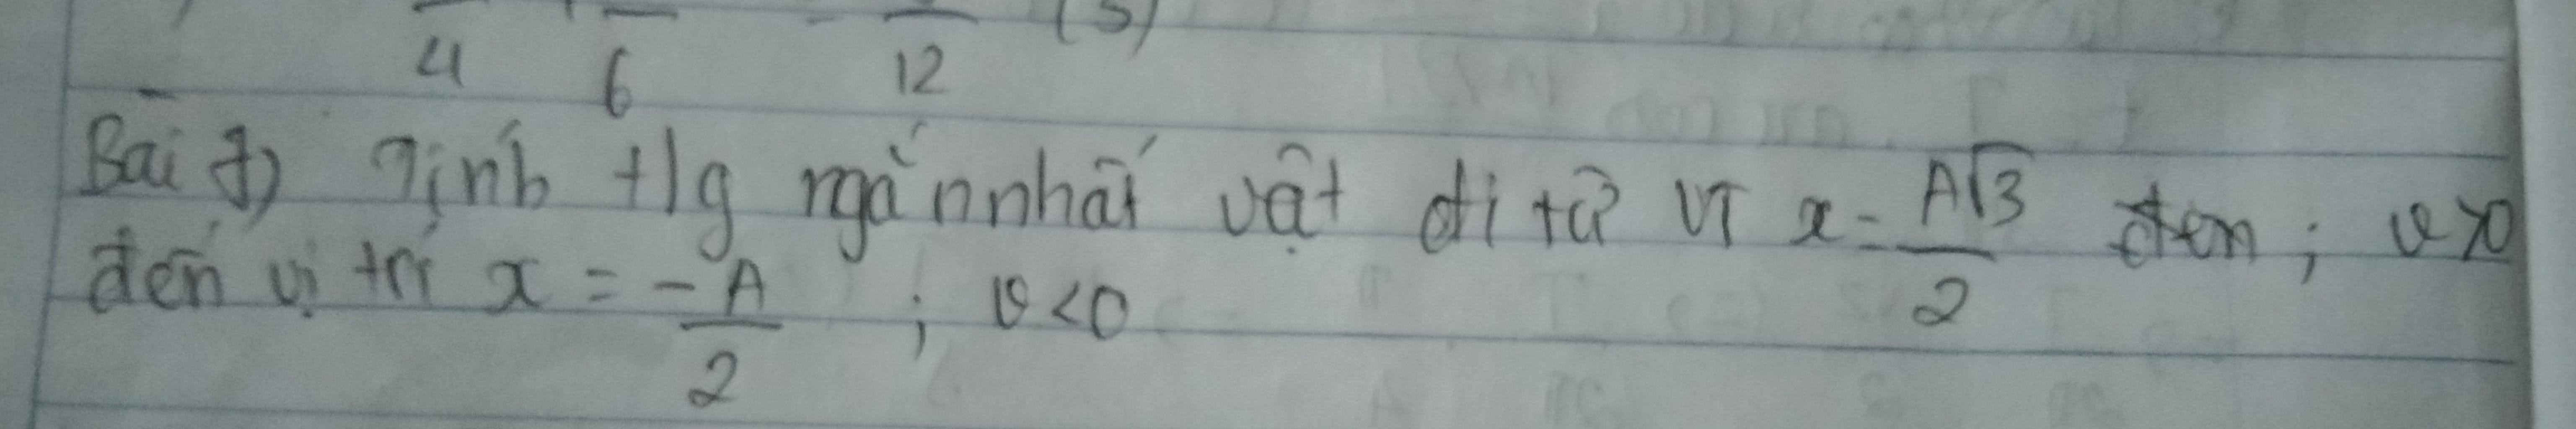 4 6 12 (s)
Bài 7) Tính tlg ngắn nhất vật đi từ VT x = A√3/2 đến ; v>0
đến vị trí x = -A/2 ; v<0